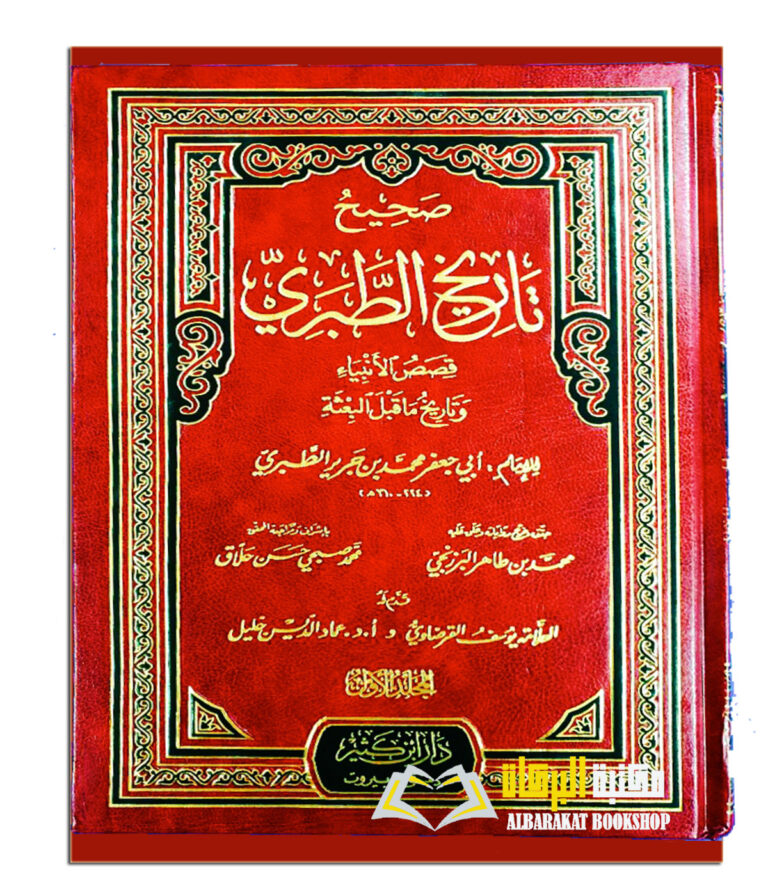 صَحِيحُ
تَارِيخِ الطَّبَرِيِّ
قِصَصُ الأَنْبِيَاءِ
وَتَارِيخُ مَا قَبْلَ البِعْثَةِ
للإمام أبي جعفر محمد بن جرير الطبري
(٢٢٤-٣١٠هـ)
حققه وخرج رواياته وعلق عليه
بإشراف ومراجعة المحقق
محمد بن طاهر البرزنجي
محمد صبحي حسن حلاق
قدم له
العلامة يوسف القرضاوي و أ.د. عماد الدين خليل
المجلد الأول
دار ابن كثير
بيروت
مكتبة البركات
ALBARAKAT BOOKSHOP